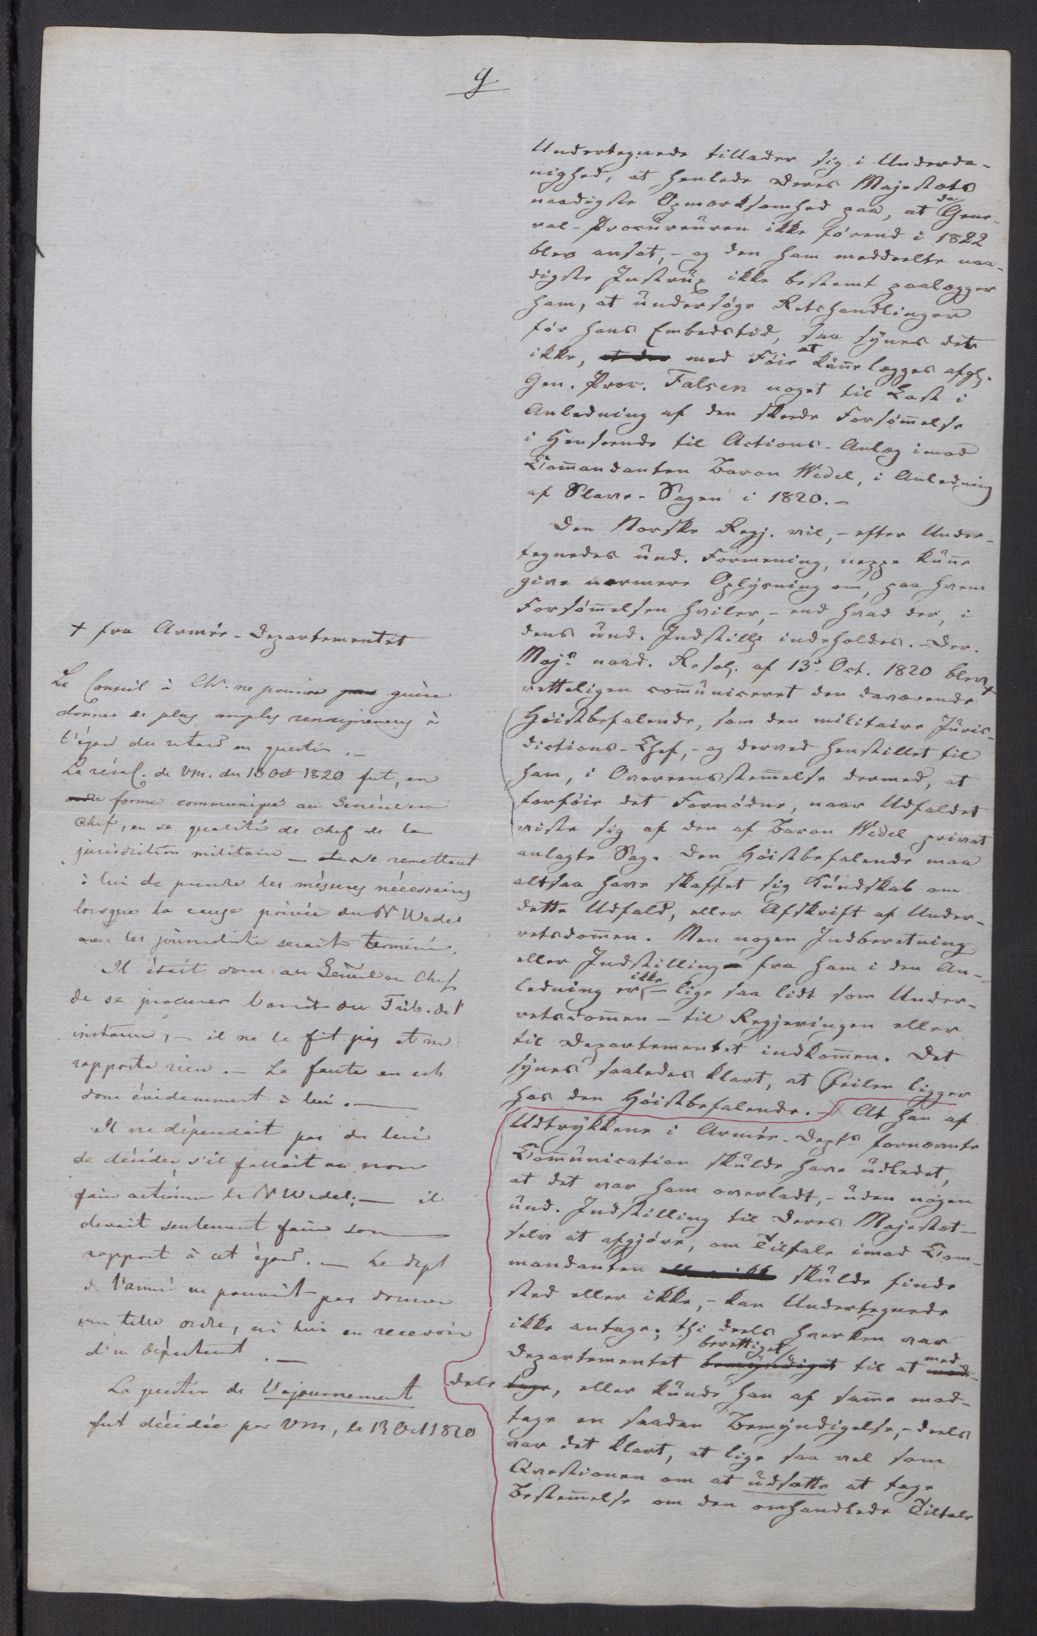 g
Undertegnede tillader sig i Underda-
nighed, at henlede Deres Majestæts
naadigste Opmærksomhed paa, at da Gene-
ral-Procureuren ikke førend i 1822
blev ansat, - og den ham meddeelte naa-
digste Instrux ikke bestemt paalægger
ham, at undersøge Retshandlinger
før hans Embedstid, saa synes det
ikke, at med Føie at kunne lægges afg.
Gen. Proc. Falsen noget til Last i
Anledning af den skeede Forsømmelse
i Henseende til Actions-Anlæg imod
Commandanten Baron Wedel, i Anledning
af Slave-Sagen i 1820. -
Den Norske Regj. vil, - efter Under-
tegnedes und. Formening, neppe kunne
give nærmere Oplysning om, paa hvem
Forsømmelsen hviler, - end hvad der, i
dens und. Indstillg indeholdes. - Der.
Majs naad. Resol. af 13d Oct. 1820 blev +
retteligen communiceret den daværende
Høistbefalende, som den militaire Juris-
dictions-Chef, - og derved henstillet til
ham, i Overeensstemmelse dermed, at
forføie det Fornødne, naar Udfaldet
viste sig af den af Baron Wedel privat
anlagte Sag. Den Høistbefalende maa
altsaa have skaffet sig Kundskab om
dette Udfald, eller Afskrift af Under-
retsdommen. Men nogen Indberetning
eller Indstilling fra ham i den An-
ledning er ikke - lige saa lidt som Under-
retsdommen - til Regjeringen eller
til Departementet indkommen. Det
synes saaledes klart, at Feilen ligger
hos den Høistbefalende. - At han af
Udtrykkene i Armée-Depts fornævnte
Communication skulde have udledet,
at det var ham overladt, - uden nogen
und. Indstilling til Deres Majestæt -
selv at afgjøre, om Tiltale imod Com-
mandanten skulde finde
sted eller ikke, - kan Undertegnede
ikke antage; thi deels hverken var
Departementet bemyndiget berettiget til at med-
dele, eller kunde han af samme mod-
tage en saadan Bemyndigelse, - deels
var det klart, at lige saa vel som
Qvestionen om at udsætte at tage
Bestemmelse om den omhandlede Tiltale
+ fra Armée-Departementet
Le Conseil à Chr. ne pourra guère
donner de plus amples renseignemens à
l'égard du retard en question. -
La résol. de V.M. du 13 Oct 1820 fut, en
forme communiquée au Général en
Chef, en sa qualité de chef de la
jurisdiction militaire - remettant
à lui de prendre les mésures nécessaires
lorsque la cause privée du Bn Wedel
serait terminée.
Il était donc au Général en Chef
de se procurer l'arrêt du Trib. de 1e
instance, - il ne le fit pas et ne
rapporta rien. - La faute en est
donc évidemment à lui. -
Il ne dépendait pas de lui
de décider s'il fallait ou non
faire actionner le Bn Wedel; - il
devait seulement faire son
rapport à cet égard. - Le dept
de l'armée ne pouvait pas donner
une telle ordre, ni lui en recevoir
d'un département. -
La question de l'ajournement
fut décidée par V.M., le 13 Oct 1820